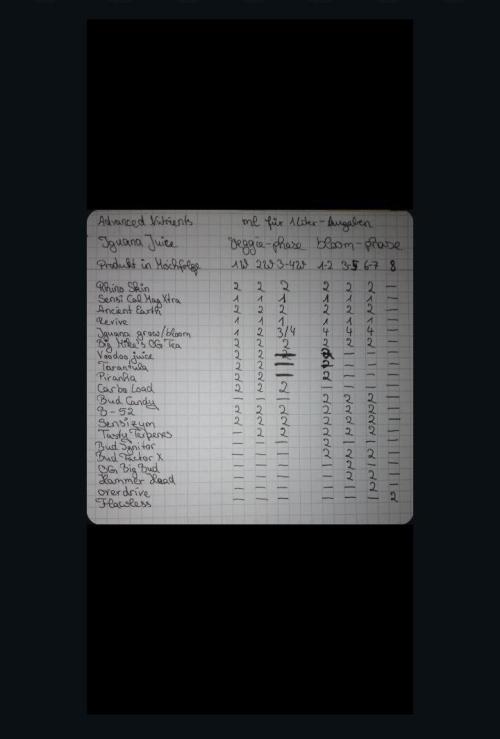 Advanced Nutrients ml für 1 Liter-Angaben
Iguana Juice Veggie-phase bloom-phase
Produkt in Mischfolge 1W 2W 3-4W 1-2 3-5 6-7 8
Rhino Skin 2 2 2 2 2 2 —
Sensi Cal Mag Xtra 1 1 1 1 1 1 —
Ancient Earth 2 2 2 2 2 2 —
Revive 1 1 1 1 1 1 —
Iguana grow/bloom 1 2 3/4 4 4 4 —
Big Mike's OG Tea 2 2 2 2 2 2 —
Voodoo juice 2 2 — 2 — — —
Tarantula 2 2 — 2 — — —
Piranha 2 2 — 2 — — —
Carbo Load 2 2 2 — — — —
Bud Candy — — — 2 2 2 —
B-52 2 2 2 2 2 2 —
Sensizym 2 2 2 2 2 2 —
Tasty Terpenes — 2 2 2 2 2 —
Bud Ignitor — — — 2 — — —
Bud Factor X — — — 2 2 2 —
OG Big Bud — — — — 2 — —
Hammer Head — — — — 2 2 —
overdrive — — — — — 2 —
Flawless — — — — — — 2